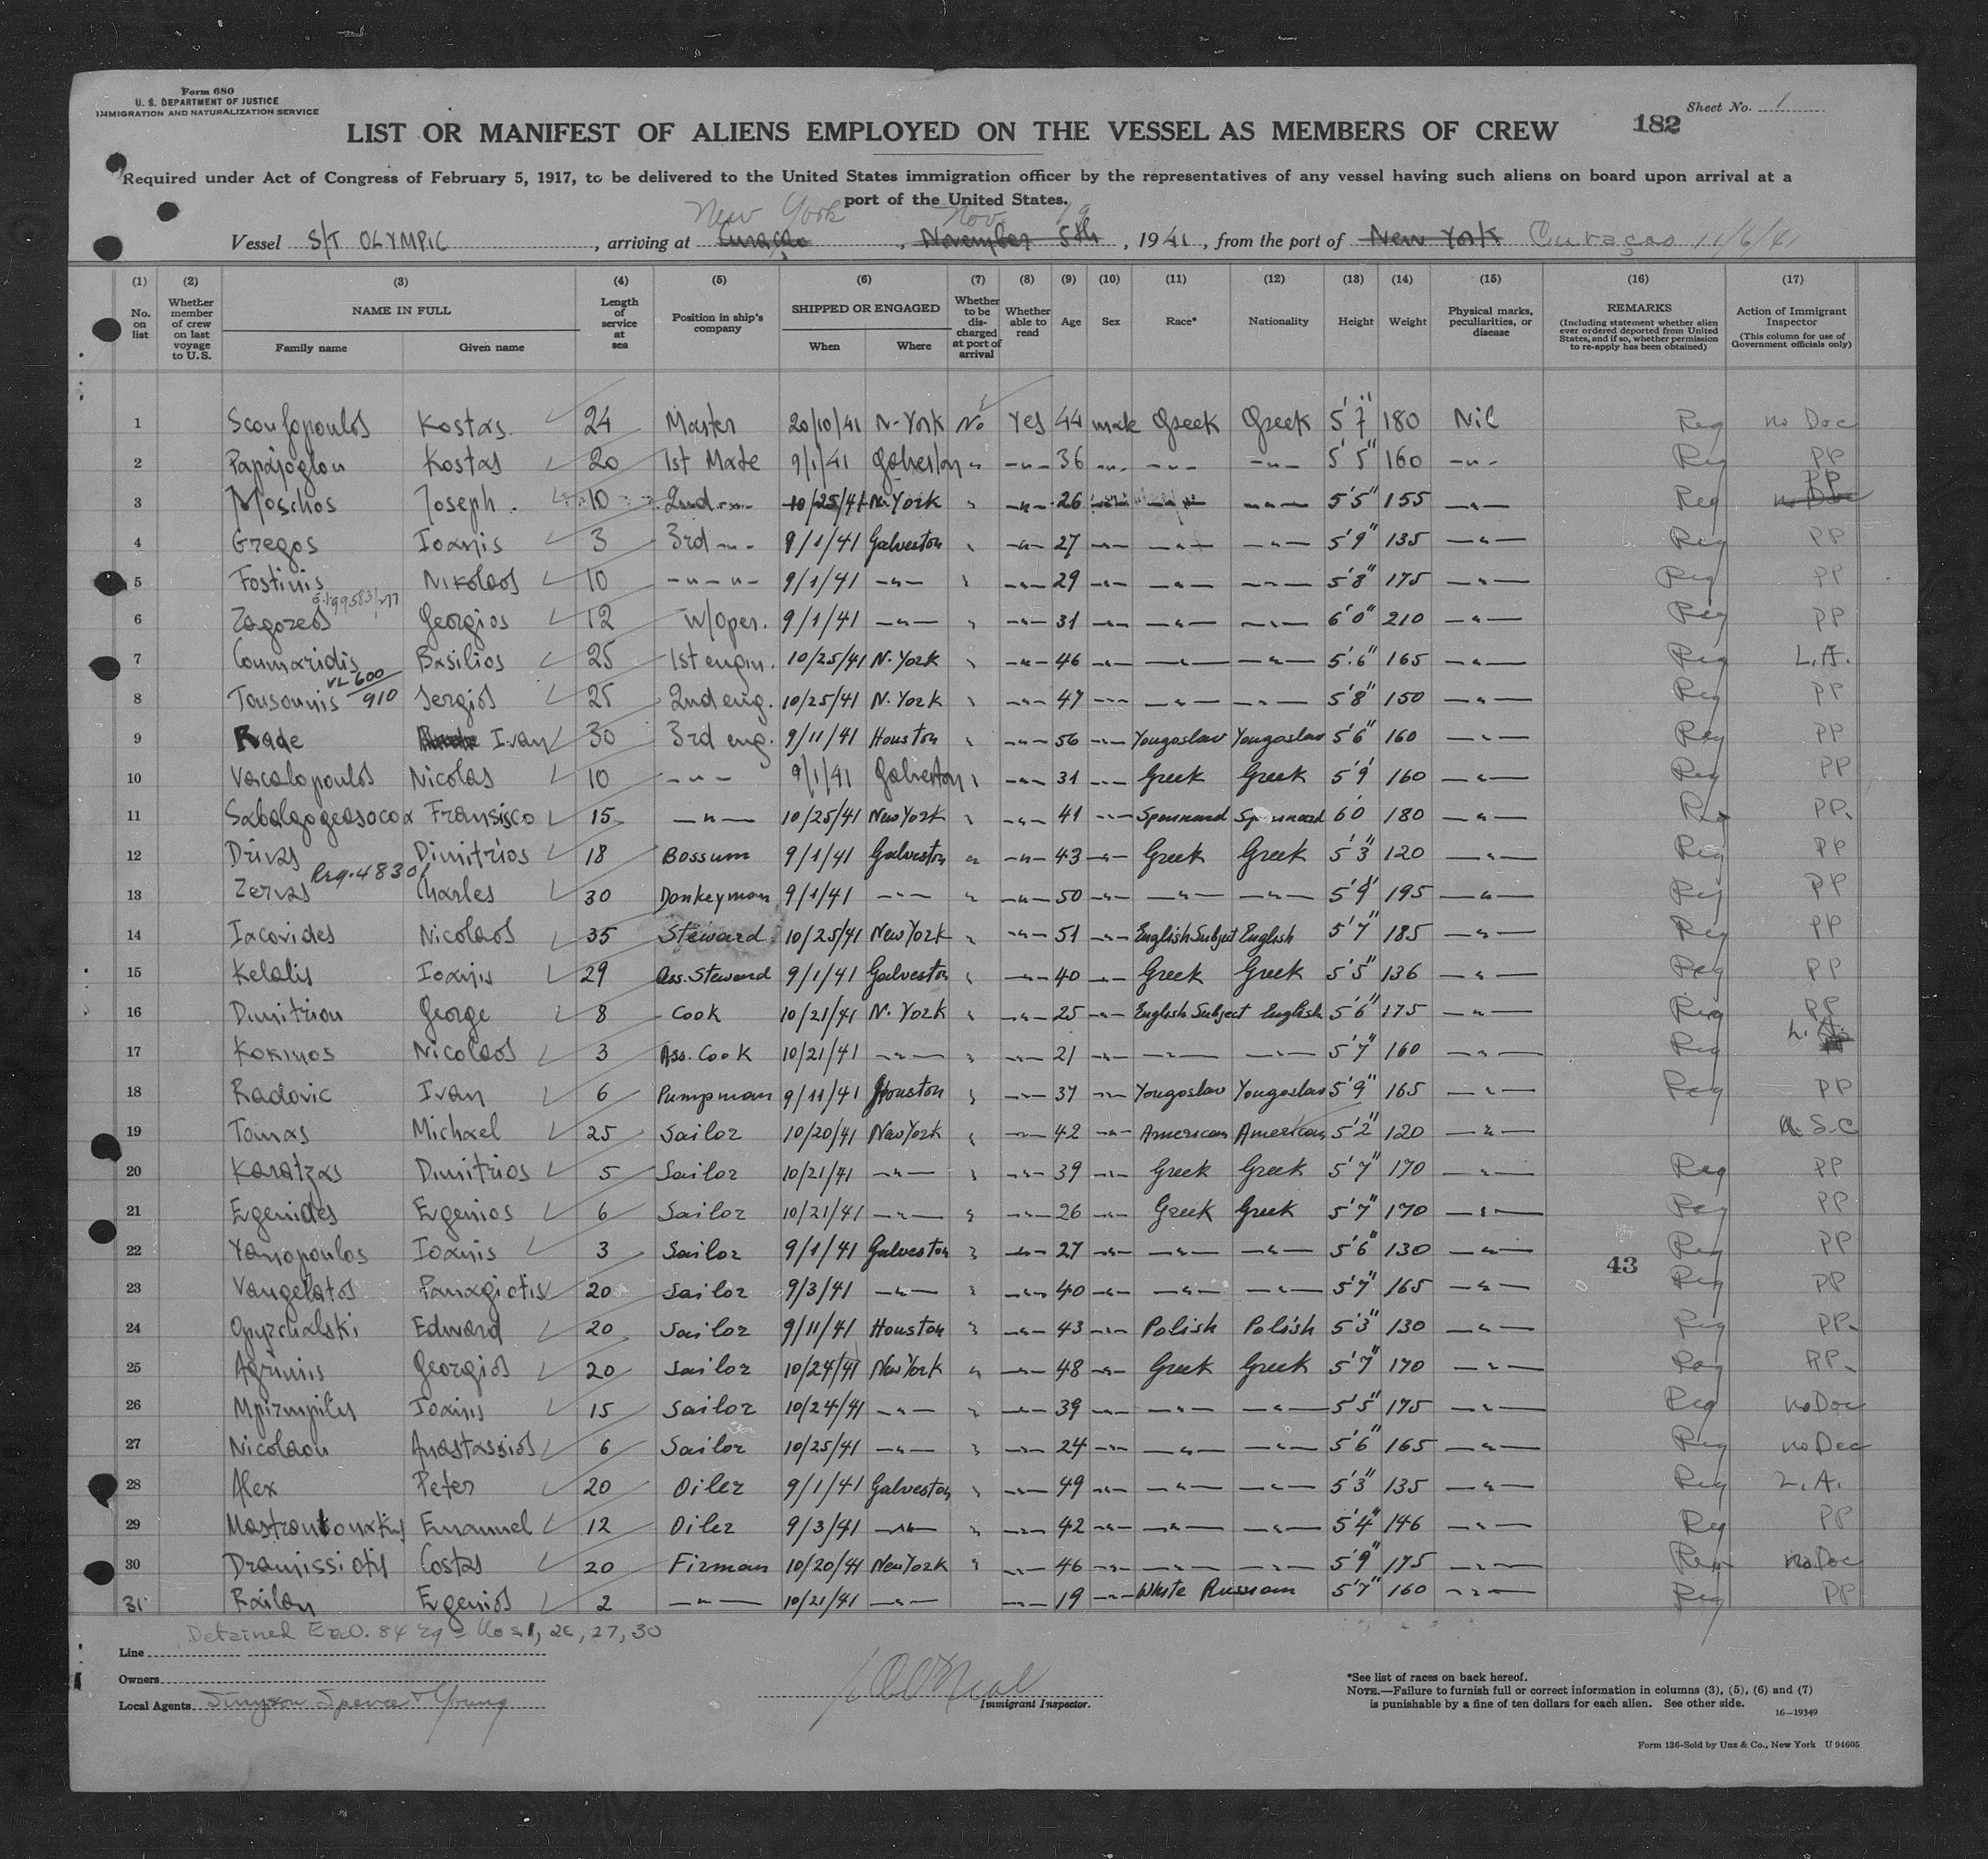 Form 680
U. S. DEPARTMENT OF JUSTICE
IMMIGRATION AND NATURALIZATION SERVICE
Sheet No. 1
LIST OR MANIFEST OF ALIENS EMPLOYED ON THE VESSEL AS MEMBERS OF CREW
182
Required under Act of Congress of February 5, 1917, to be delivered to the United States immigration officer by the representatives of any vessel having such aliens on board upon arrival at a
port of the United States.
New York Nov. 19
Vessel S/T OLYMPIC, arriving at Curaçao, November 5th, 1941, from the port of New York Curacao 11/6/41
(1) (2) (3) (4) (5) (6) (7) (8) (9) (10) (11) (12) (13) (14) (15) (16) (17)
No. on list Whether member of crew on last voyage to U.S. NAME IN FULL Family name Given name Length of service at sea Position in ship's company SHIPPED OR ENGAGED When Where Whether to be discharged at port of arrival Whether able to read Age Sex Race* Nationality Height Weight Physical marks, peculiarities, or disease REMARKS (Including statement whether alien ever ordered deported from United States, and if so, whether permission to re-apply has been obtained) Action of Immigrant Inspector (This column for use of Government officials only)
1 Scoufopoulos Kostas. 24 Master 20/10/41 N-York No Yes 44 male Greek Greek 5'7" 180 Nil Reg no Doc
2 Papajoglou Kostas 20 1st Mate 9/1/41 Galveston " -"- 36 -"- -"- -"- 5'5" 160 -"- Reg PP
3 Moschos Joseph. 10 2nd -"- 10/25/41 N-York " -"- 26 -"- -"- -"- 5'5" 155 -"- Reg no Doc PP
4 Gregos Ioanis 3 3rd -"- 9/1/41 Galveston " -"- 27 -"- -"- -"- 5'9" 135 -"- Reg PP
5 Fostinis Nikolaos 10 -"-"- 9/1/41 -"- " -"- 29 -"- -"- -"- 5'8" 175 -"- Reg PP
6 Zagoreos Georgios 12 W/Oper. 9/1/41 -"- " -"- 31 -"- -"- -"- 6'0" 210 -"- Reg PP
7 Coumaridis Basilios 25 1st engin. 10/25/41 N.York " -"- 46 -"- -"- -"- 5'6" 165 -"- Reg L.A.
VL-600/910
8 Tousounis Sergios 25 2nd eng. 10/25/41 N.York " -"- 47 -"- -"- -"- 5'8" 150 -"- Reg PP
9 Rade Ivan 30 3rd eng. 9/11/41 Houston " -"- 56 -"- Yougoslav Yougoslav 5'6" 160 -"- Reg PP
10 Vacalopoulos Nicolas 10 -"- 9/1/41 Galveston " -"- 31 -"- Greek Greek 5'9' 160 -"- Reg PP
11 Fransisco 15 -"- 10/25/41 New York " -"- 41 -"- Spannard Spannard 6'0 180 -"- Reg PP.
12 Drivas Dimitrios 18 Bossum 9/1/41 Galveston " -"- 43 -"- Greek Greek 5'3" 120 -"- Reg PP
13 Zervas Charles 30 Donkeyman 9/1/41 -"- " -"- 50 -"- -"- -"- 5'9' 195 -"- Reg PP
14 Iacovides Nicolaos 35 Steward 10/25/41 New York " -"- 51 -"- English Subject English 5'7" 185 -"- Reg PP
15 Kelalis Ioanis 29 Ass. Steward 9/1/41 Galveston " -"- 40 -"- Greek Greek 5'5" 136 -"- Reg PP
16 Dimitriou George 8 Cook 10/21/41 N. York " -"- 25 -"- English Subject English 5'6" 175 -"- Reg PP
17 Kokinos Nicolaos 3 Ass. Cook 10/21/41 -"- " -"- 21 -"- -"- -"- 5'7" 160 -"- Reg
18 Radovic Ivan 6 Pumpman 9/11/41 Houston " -"- 37 -"- Yougoslav Yougoslav 5'9" 165 -"- Reg PP
19 Tomas Michael 25 Sailor 10/20/41 New York " -"- 42 -"- American American 5'2" 120 -"- U.S.C
20 Karatzas Dimitrios 5 Sailor 10/21/41 -"- " -"- 39 -"- Greek Greek 5'7" 170 -"- Reg PP
21 Evgenides Evgenios 6 Sailor 10/21/41 -"- " -"- 26 -"- Greek Greek 5'7" 170 -"- Reg PP
22 Yanopoulos Ioanis 3 Sailor 9/1/41 Galveston " -"- 27 -"- -"- -"- 5'6" 130 -"- Reg PP
43
23 Vangelatos Panagiotis 20 Sailor 9/3/41 -"- " -"- 40 -"- -"- -"- 5'7" 165 -"- Reg PP
24 Opyrchalski Edward 20 Sailor 9/11/41 Houston " -"- 43 -"- Polish Polish 5'3" 130 -"- Reg PP.
25 Agrinis Georgios 20 Sailor 10/24/41 New York " -"- 48 -"- Greek Greek 5'7" 170 -"- Reg PP.
26 Mpirmpilis Ioanis 15 Sailor 10/24/41 -"- " -"- 39 -"- -"- -"- 5'5" 175 -"- Reg no Doc
27 Nicolaou Anastassios 6 Sailor 10/25/41 -"- " -"- 24 -"- -"- -"- 5'6" 165 -"- Reg no Doc
28 Alex Peter 20 Oiler 9/1/41 Galveston " -"- 49 -"- -"- -"- 5'3" 135 -"- Reg L.A.
29 Emanuel 12 Oiler 9/3/41 -"- " -"- 42 -"- -"- -"- 5'4" 146 -"- Reg PP
30 Dramissiotis Costas 20 Firman 10/20/41 New York " -"- 46 -"- -"- -"- 5'9" 175 -"- Reg no Doc
31 Evgenios 2 -"- 10/21/41 -"- -"- 19 -"- White Russian 5'7" 160 -"- Reg PP
Detained 1, 26, 27, 30
Line
Owners
Local Agents Spence & Young
Immigrant Inspector.
*See list of races on back hereof.
NOTE.—Failure to furnish full or correct information in columns (3), (5), (6) and (7)
is punishable by a fine of ten dollars for each alien. See other side.
16—19349
Form 136-Sold by Unz & Co., New York U 94605